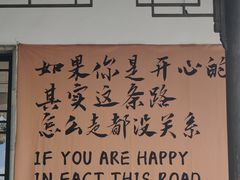 如果你是开心的
其实这条路
怎么走都没关系
IF YOU ARE HAPPY
IN FACT THIS ROAD